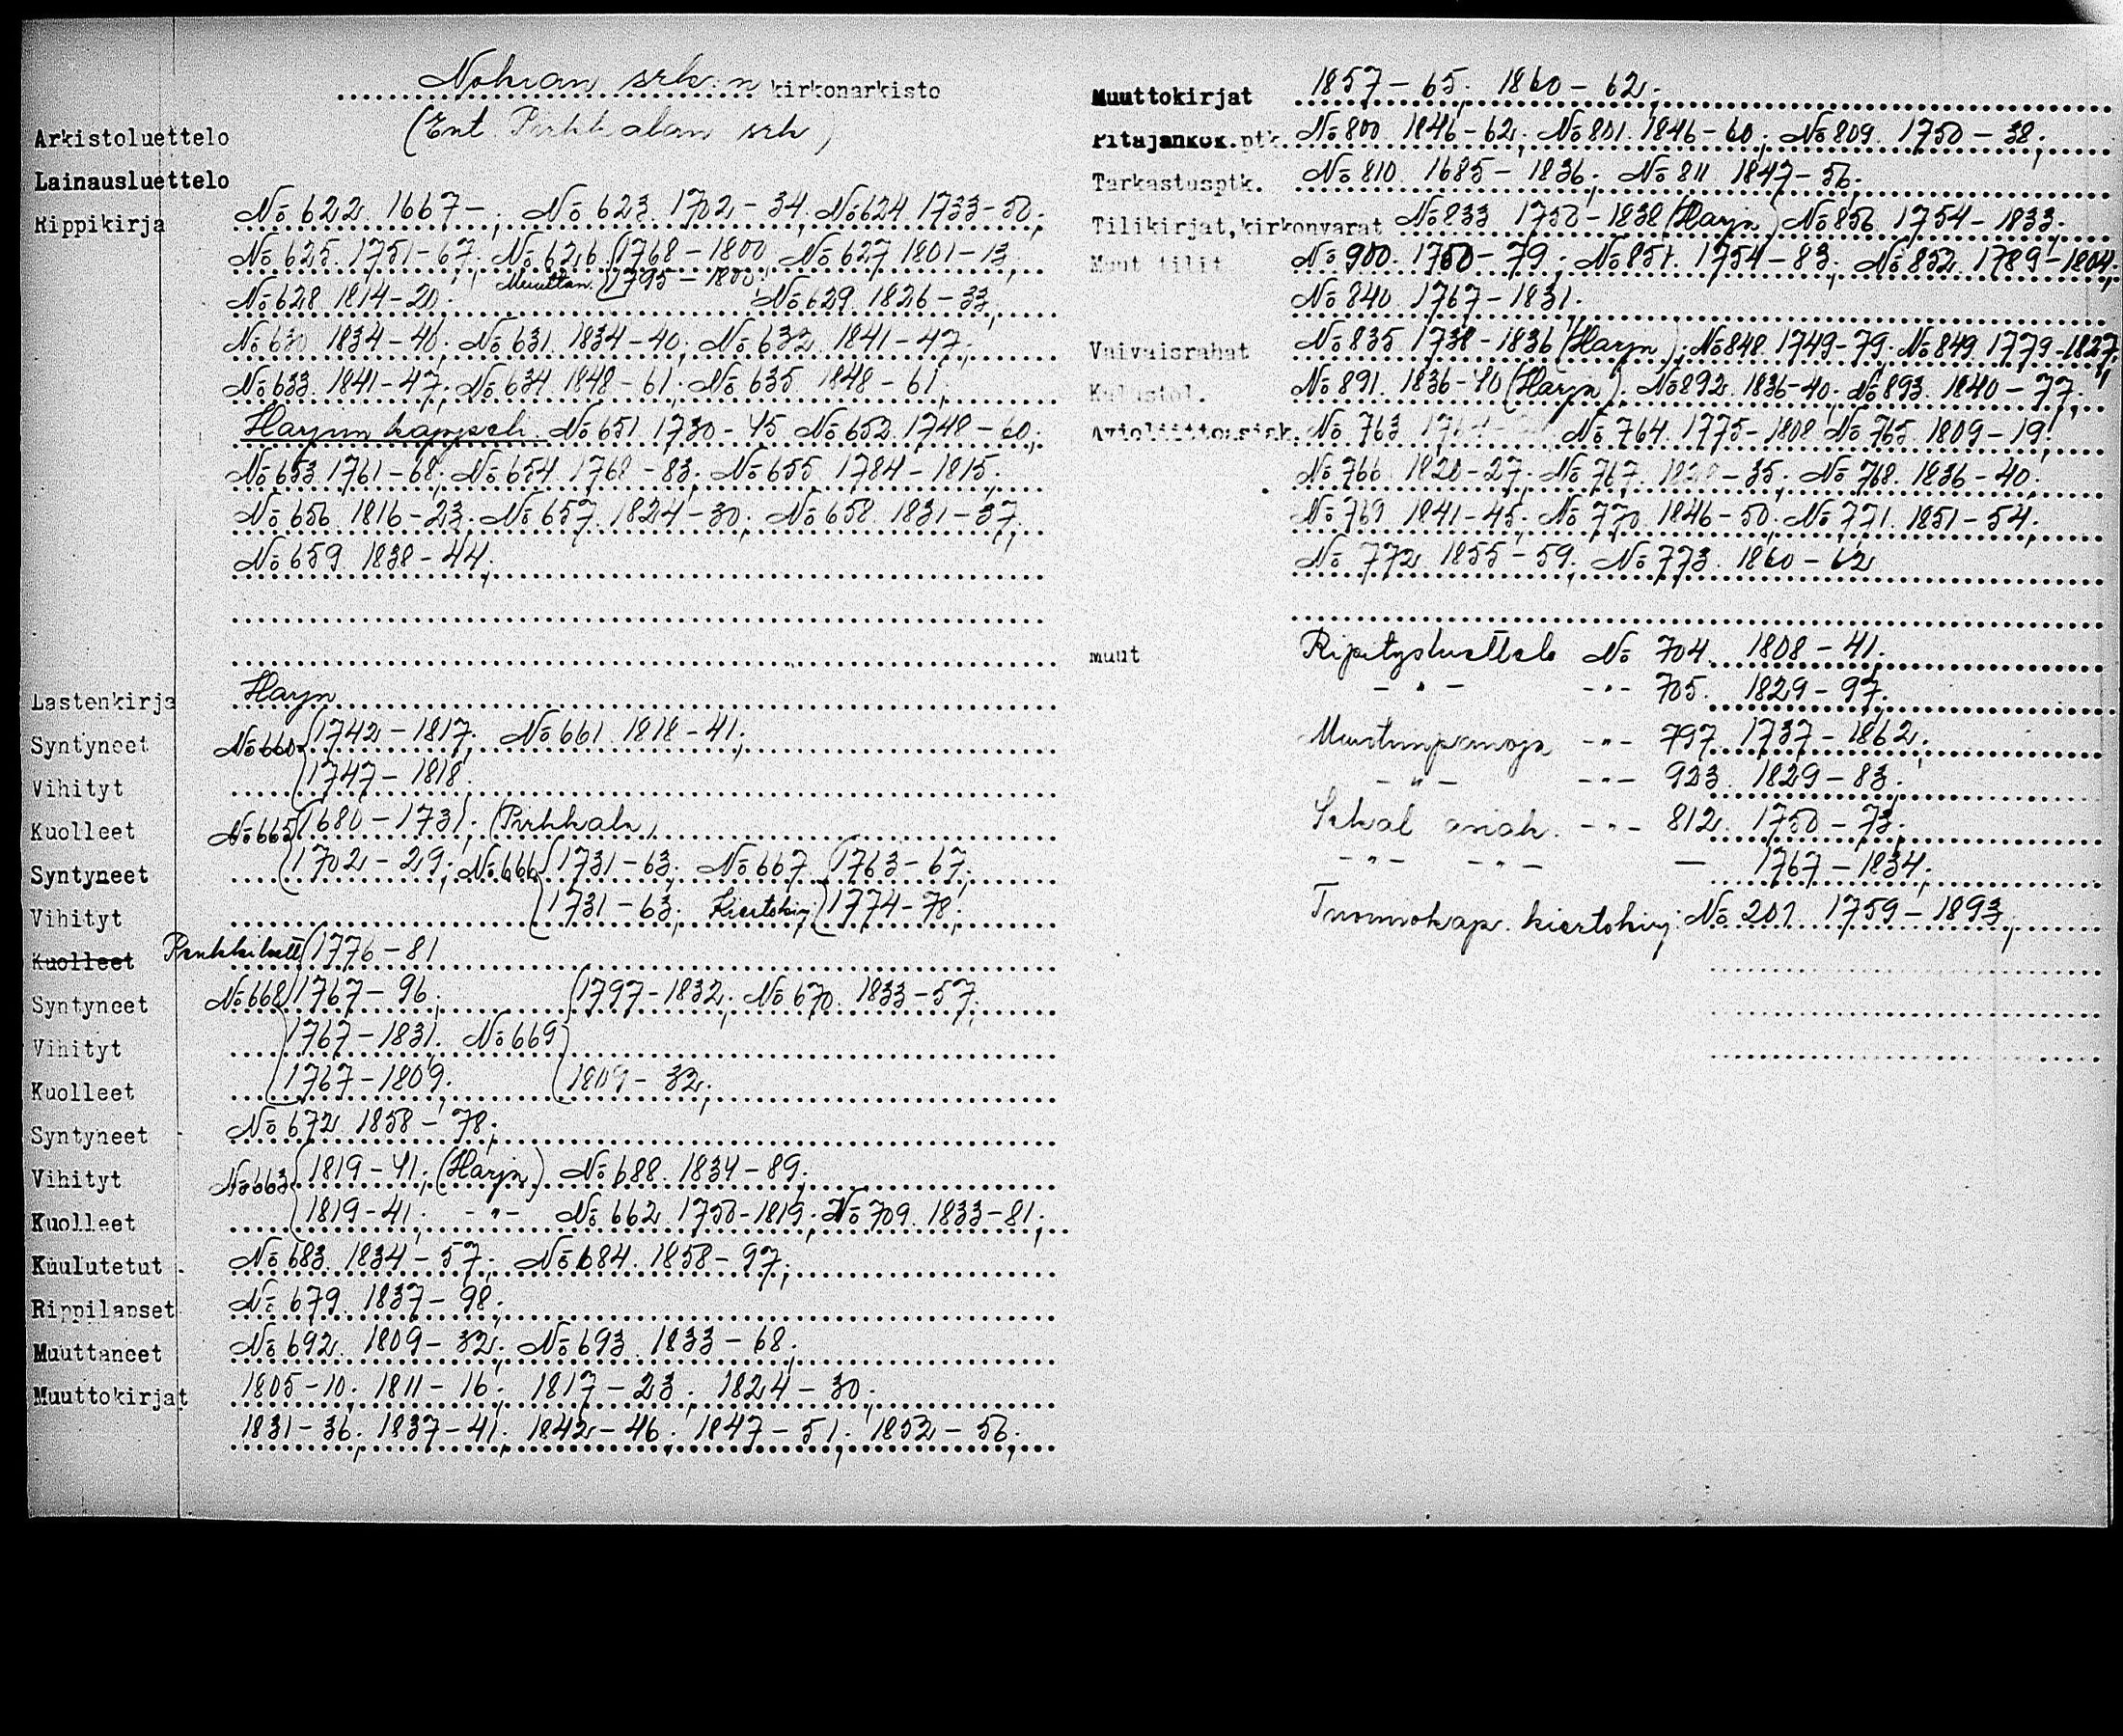 Nokian srk:n kirkonarkisto
(Ent. Pirkkalan srk)
Arkistoluettelo
Lainausluettelo
Rippikirja No 622. 1667-; No 623. 1702-34. No 624 1733-50;
No 625. 1751-67; No 626. 1768-1800, No 627 1801-13,
Muuttan. 1795-1800;
No 628 1814-20; No 629. 1826-33,
No 630 1834-40; No 631. 1834-40; No 632. 1841-47;
No 633. 1841-47; No 634 1848-61; No 635. 1848-61;
Harjun kappeli No 651 1730-45 No 652. 1748-60;
No 653 1761-68; No 654 1768-83; No 655 1784-1815;
No 656. 1816-23; No 657. 1824-30; No 658 1831-37;
No 659 1838-44;
Lastenkirja Harju
Syntyneet No 660 1742-1817; No 661 1818-41;
Vihityt 1747-1818.
Kuolleet No 665 1680-1731; (Pirkkala)
Syntyneet 1702-29; No 666 1731-63; No 667 1763-67;
Vihityt 1731-63; Kiertokirj. 1774-78;
Kuolleet Penkkiluett. 1776-81
Syntyneet No 668 1767-96; 1797-1832; No 670. 1833-57;
Vihityt 1767-1831. No 669
Kuolleet 1767-1809; 1809-32;
Syntyneet No 672 1858-78;
Vihityt No 663 1819-41; (Harju) No 688. 1834-89;
Kuolleet 1819-41; -"- No 662 1750-1819; No 709. 1833-81;
Kuulutetut No 683. 1834-57; No 684. 1858-97;
Rippilapset No 679. 1837-98;
Muuttaneet No 692. 1809-32; No 693 1833-68;
Muuttokirjat 1805-10; 1811-16; 1817-23; 1824-30;
1831-36; 1837-41; 1842-46; 1847-51; 1852-56;
Muuttokirjat 1857-65; 1860-62;
Pitäjänkok.ptk. No 800. 1846-62; No 801. 1846-60; No 809. 1750-38;
Tarkastusptk. No 810. 1685-1836; No 811 1847-56;
Tilikirjat,kirkonvarat No 833 1750-1838 (Harju) No 856. 1754-1833;
Muut tilit No 900. 1760-79; No 851. 1754-83; No 852. 1789-1804;
No 840. 1767-1831.
Vaivaisrahat No 835 1738-1836 (Harju); No 848. 1749-79. No 849. 1779-1827,
Kalustol. No 891. 1836-40 (Harju); No 892. 1836-40; No 893. 1840-77;
Avioliittoasiak. No 763 No 764. 1775-1808 No 765. 1809-19;
No 766. 1820-27; No 767. 1828-35; No 768. 1836-40;
No 769 1841-45; No 770. 1846-50; No 771. 1851-54;
No 772. 1855-59; No 773. 1860-62
muut Ripityslusttelo No 704. 1808-41.
-"- -"- 705. 1829-97.
Muistiinpanoja -"- 797. 1737-1862;
-"- -"- 923. 1829-83;
Sekal asiak. -"- 812. 1750-73;
-"- -"- - 1767-1834;
Tuomiokap. kiertokirj. No 201. 1759-1893;